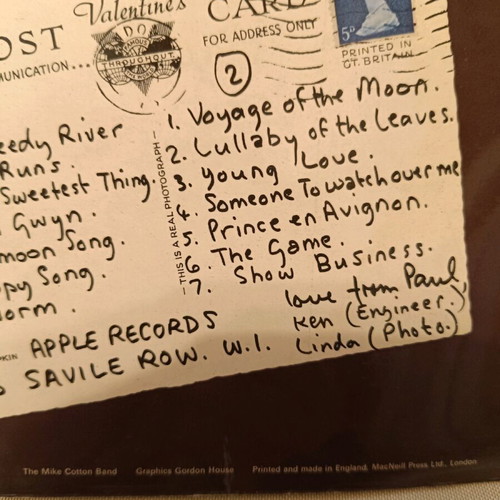 Valentine's
OST CARD
MUNICATION... FOR ADDRESS ONLY
THROUGHOUT
5P
PRINTED IN
GT. BRITAIN
2
eedy River
Runs.
Sweetest Thing.
Gwyn.
moon Song.
ppy Song.
torm.
— THIS IS A REAL PHOTOGRAPH —
1. Voyage of the Moon.
2. Lullaby of the Leaves.
3. Young Love.
4. Someone To watch over me
5. Prince en Avignon.
6. The Game.
7. Show Business.
love from Paul
Ken (Engineer.)
Linda (Photo.)
APPLE RECORDS
SAVILE ROW. W.1.
The Mike Cotton Band Graphics Gordon House Printed and made in England. MacNeill Press Ltd., London